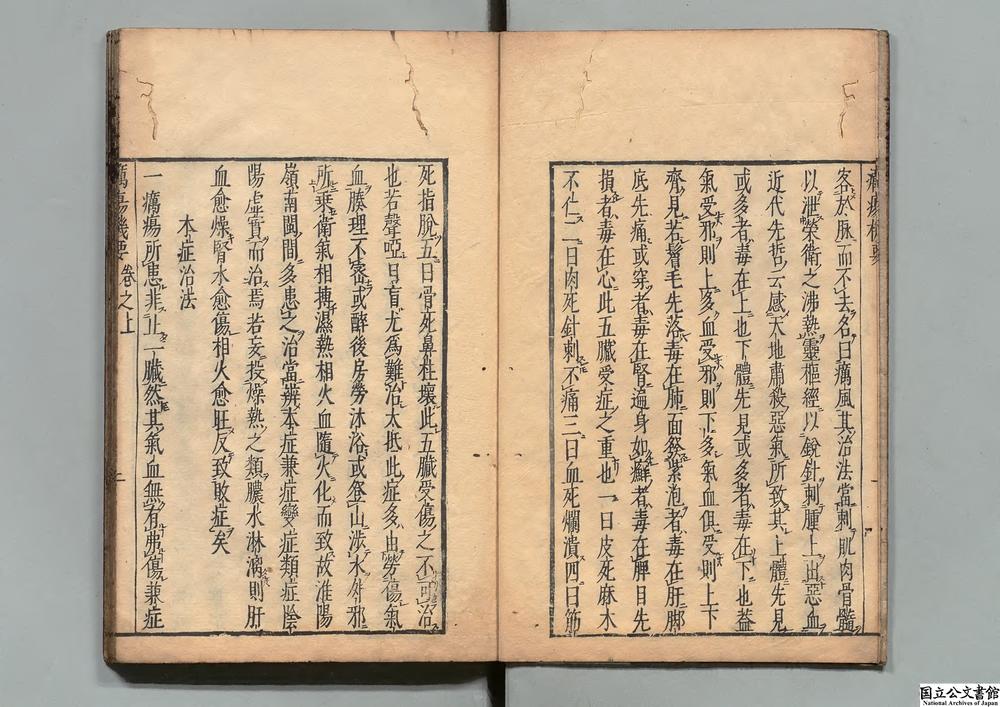 癘瘍機要
客於脉而不去名曰癘風其治法當刺肌肉骨髓
以泄榮衛之沸熱靈樞經以銳針刺腫上出惡血
近代先哲云感天地肅殺惡氣所致其上體先見
或多者毒在上也下體先見或多者毒在下也蓋
氣受邪則上多血受邪則下多氣血俱受則上下
齊見若鬚毛先落毒在肺面發紫泡者毒在肝脚
底先痛或穿者毒在腎遍身如癬者毒在脾目先
損者毒在心此五臟受症之重也一曰皮死麻木
不仁二曰肉死針刺不痛三曰血死爛潰四曰筋
一
死指脫五曰骨死鼻柱壞此五臟受傷之不可治
也若聲啞目盲尤爲難治大抵此症多由勞傷氣
血腠理不密或醉後房勞沐浴或登山涉水外邪
所乗衛氣相搏濕熱相火血隨火化而致故淮陽
嶺南閩間多患之治當辨本症兼症變症類症陰
陽虛實而治焉若妄投燥熱之類膿水淋漓則肝
血愈燥腎水愈傷相火愈旺反致敗症矣
本症治法
一癘瘍所患非止一臟然其氣血無有弗傷兼症
癘瘍機要 卷之上 二
国立公文書館
National Archives of Japan